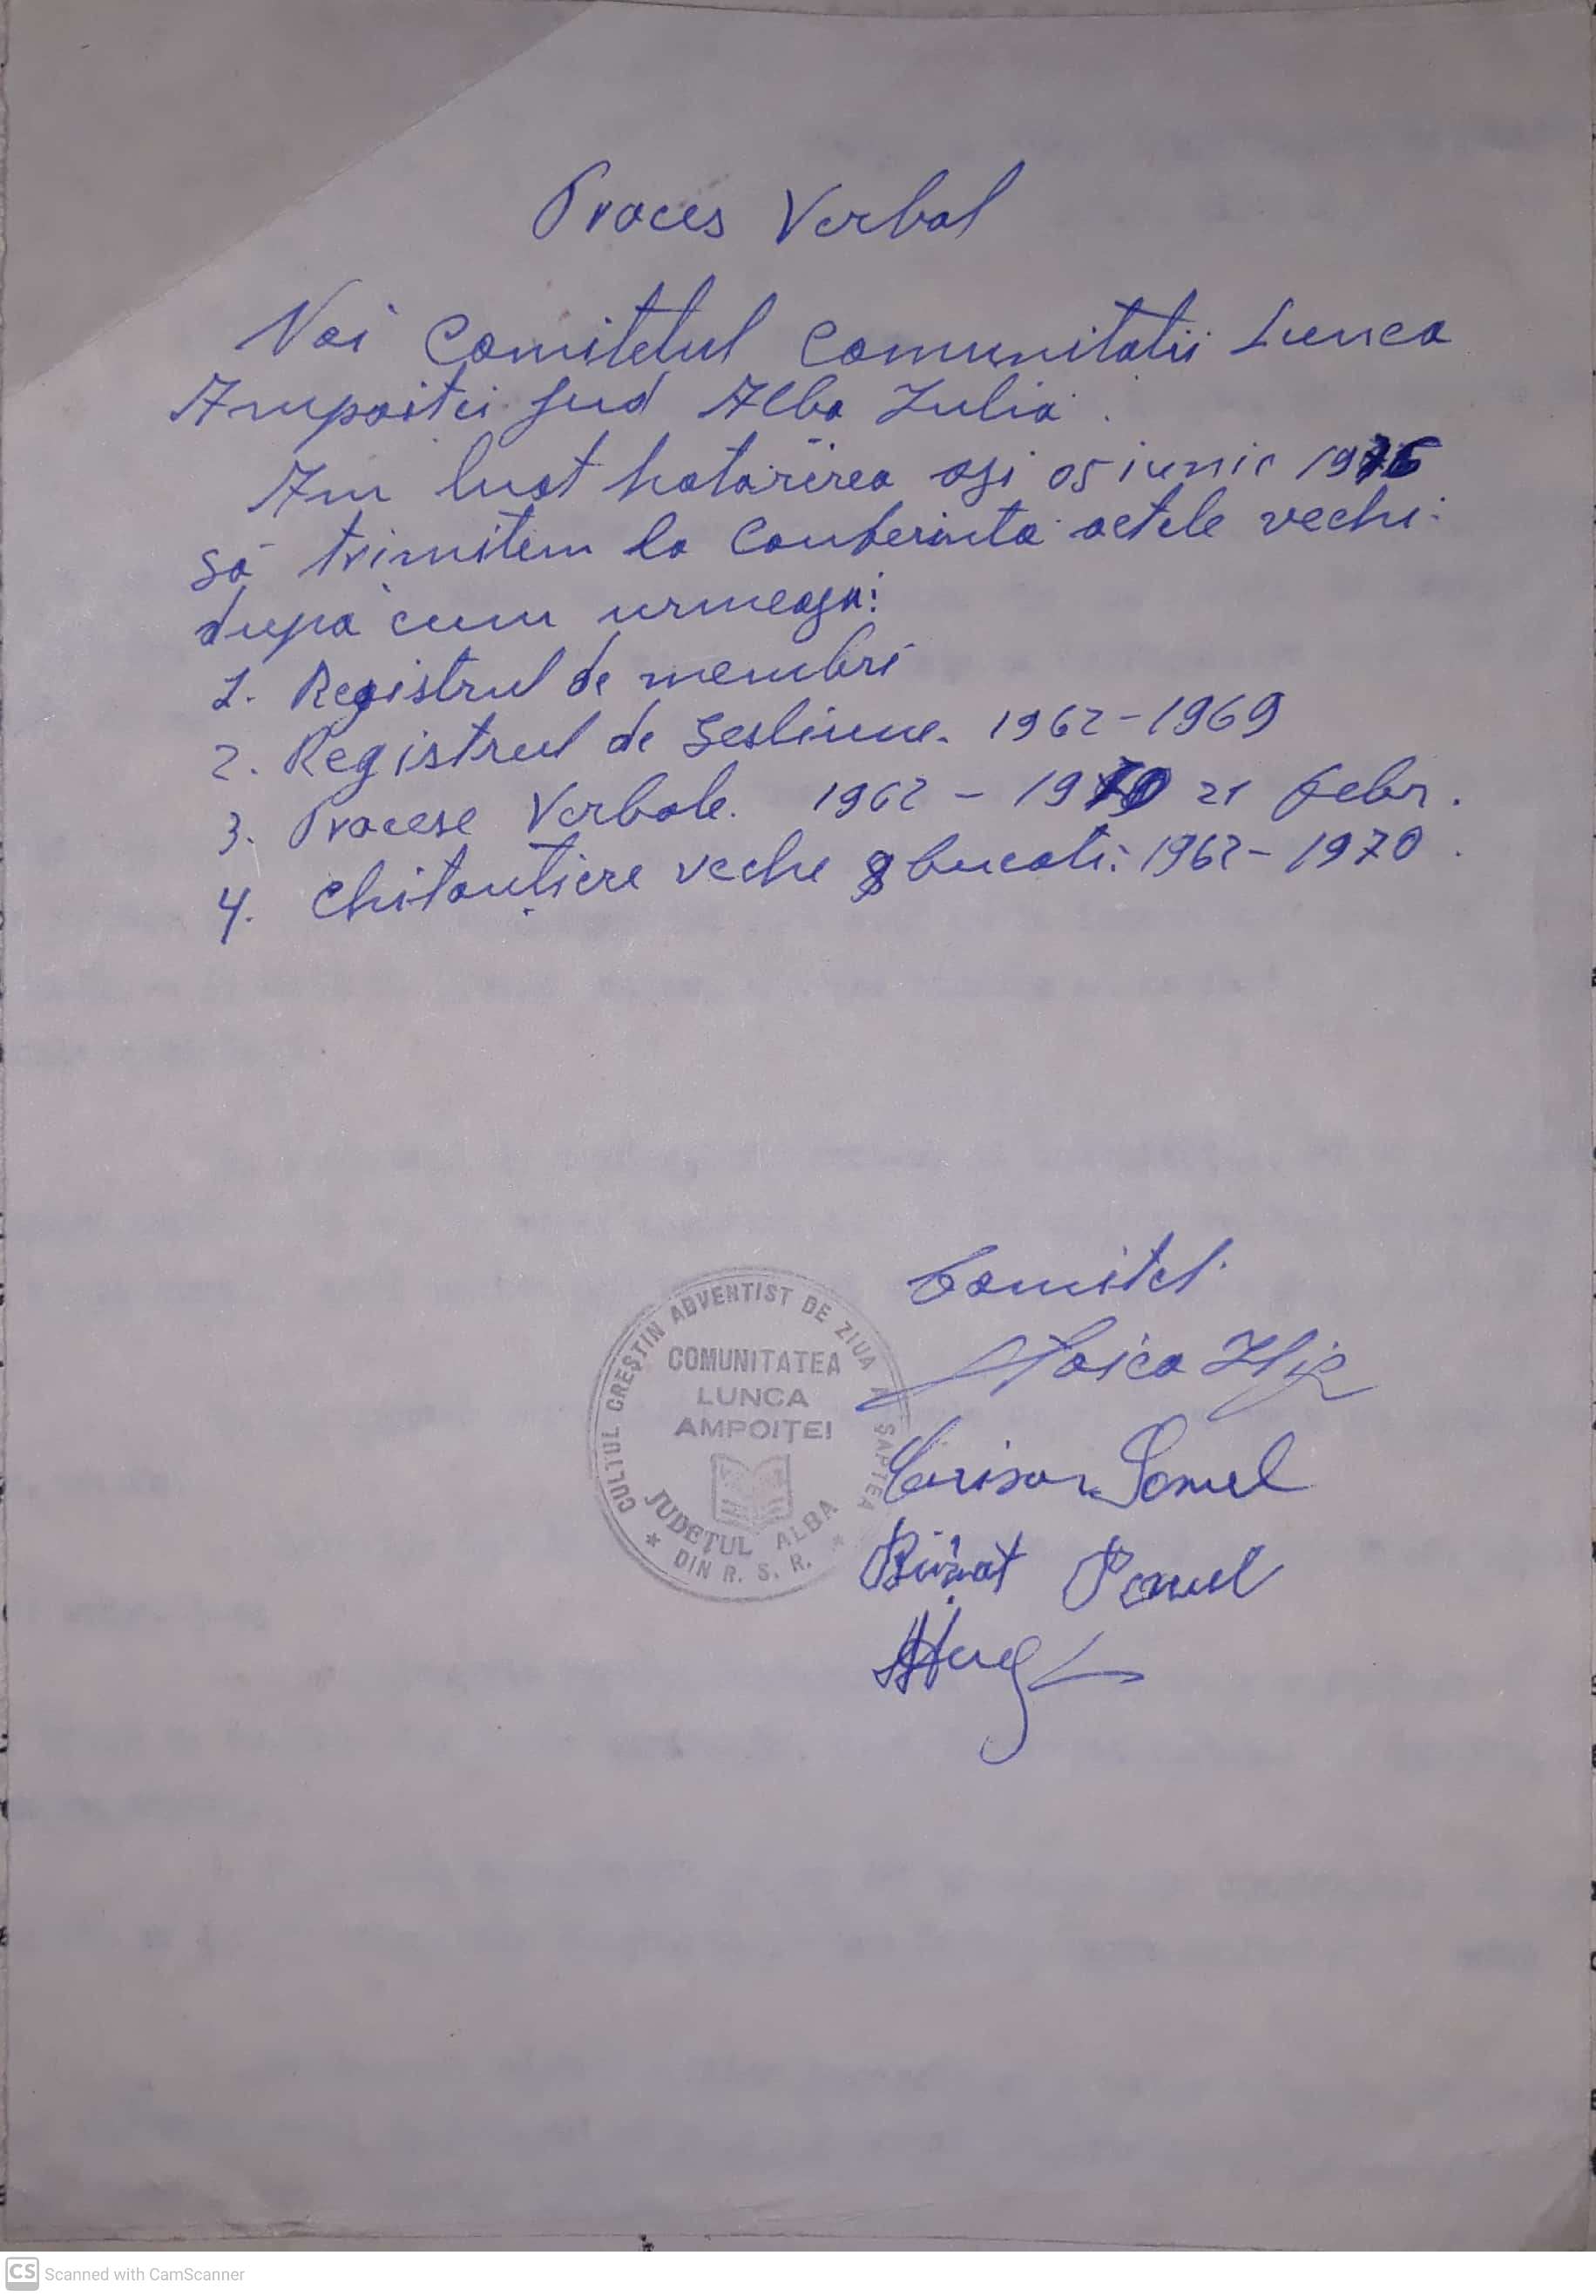 Proces Verbal
Noi Comitetul Comunitatii Lunca
Ampoitei jud Alba Iulia.
Am luat hotarîrea azi 05 iunie 1976
să trimitem la Conferinta actele vechi.
dupa cum urmeaza:
1. Registrul de membri
2. Registrul de Sesliune. 1962-1969
3. Procese Verbale. 1962 - 1970 21 febr.
4. Chitanțiere veche 8 bucati: 1962-1970.
Comitet.
CULTUL CREȘTIN ADVENTIST DE ZIUA A ȘAPTEA
COMUNITATEA
LUNCA
AMPOIȚEI
JUDEȚUL ALBA
* DIN R. S. R. *
Ilie
Samuel
Pavel
CS Scanned with CamScanner